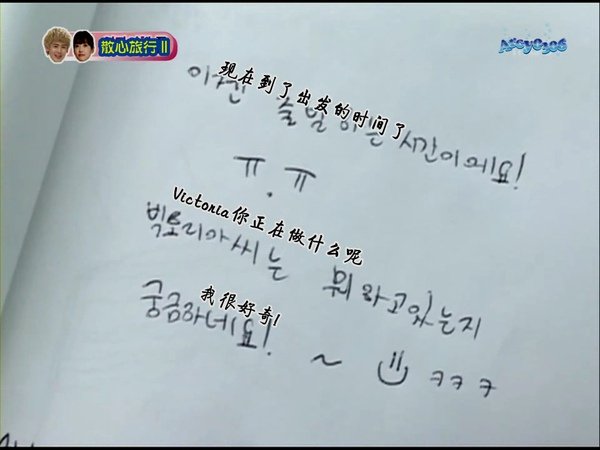 散心旅行 II
现在到了出发的时间了
시간이에요!
ㅠ.ㅠ
Victoria你正在做什么呢
빅토리아씨는 뭐하고있는지
我很好奇!
궁금하네요! ~ ㅋㅋㅋ